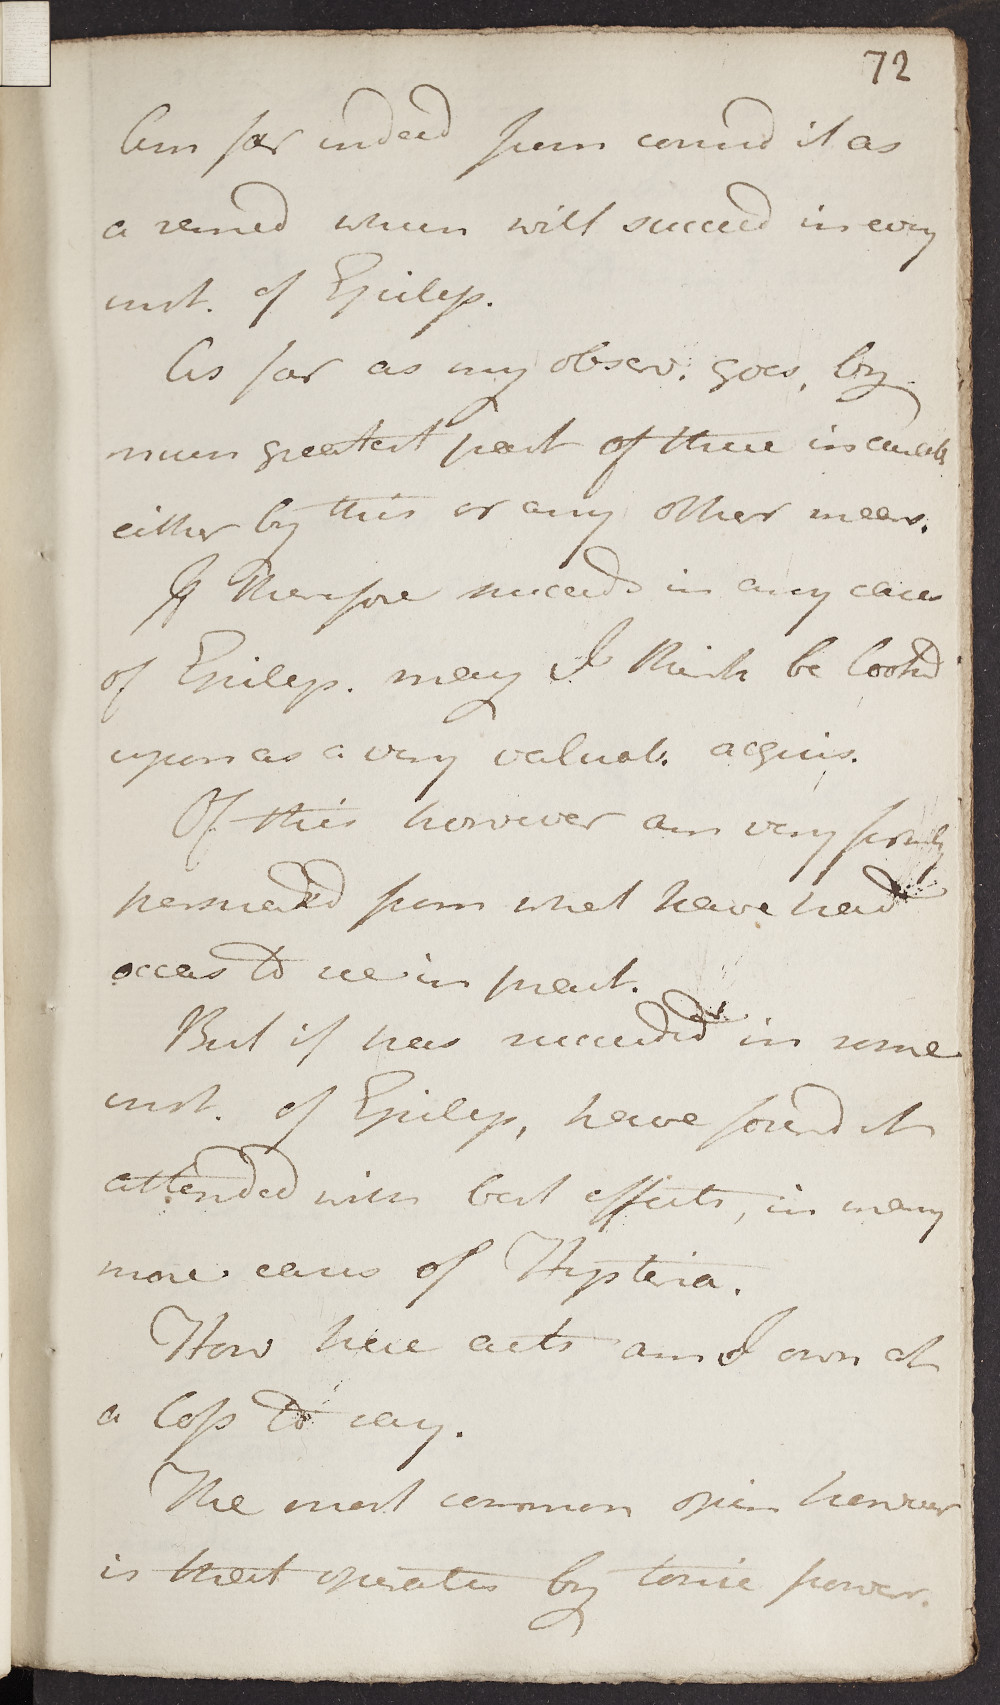 72
Am far indeed from consid it as
a remed which will succeed in every
inst. of Epilep.
As far as my observ. goes, by
much greatest part of these incurab
either by this or any other mean.
If Therefore succeeds in any cases
of Epilep. may I think be lookd
upon as a very valuab. acquis.
Of this however am very firmly
persuaded from what have had
occas to see in pract.
But if has succeeded in some
inst. of Epilep, have found it
attended with best effects, in many
more cases of Hysteria.
How here acts am I own at
a loss to say.
The most common opin however
is that operates by tonic power.